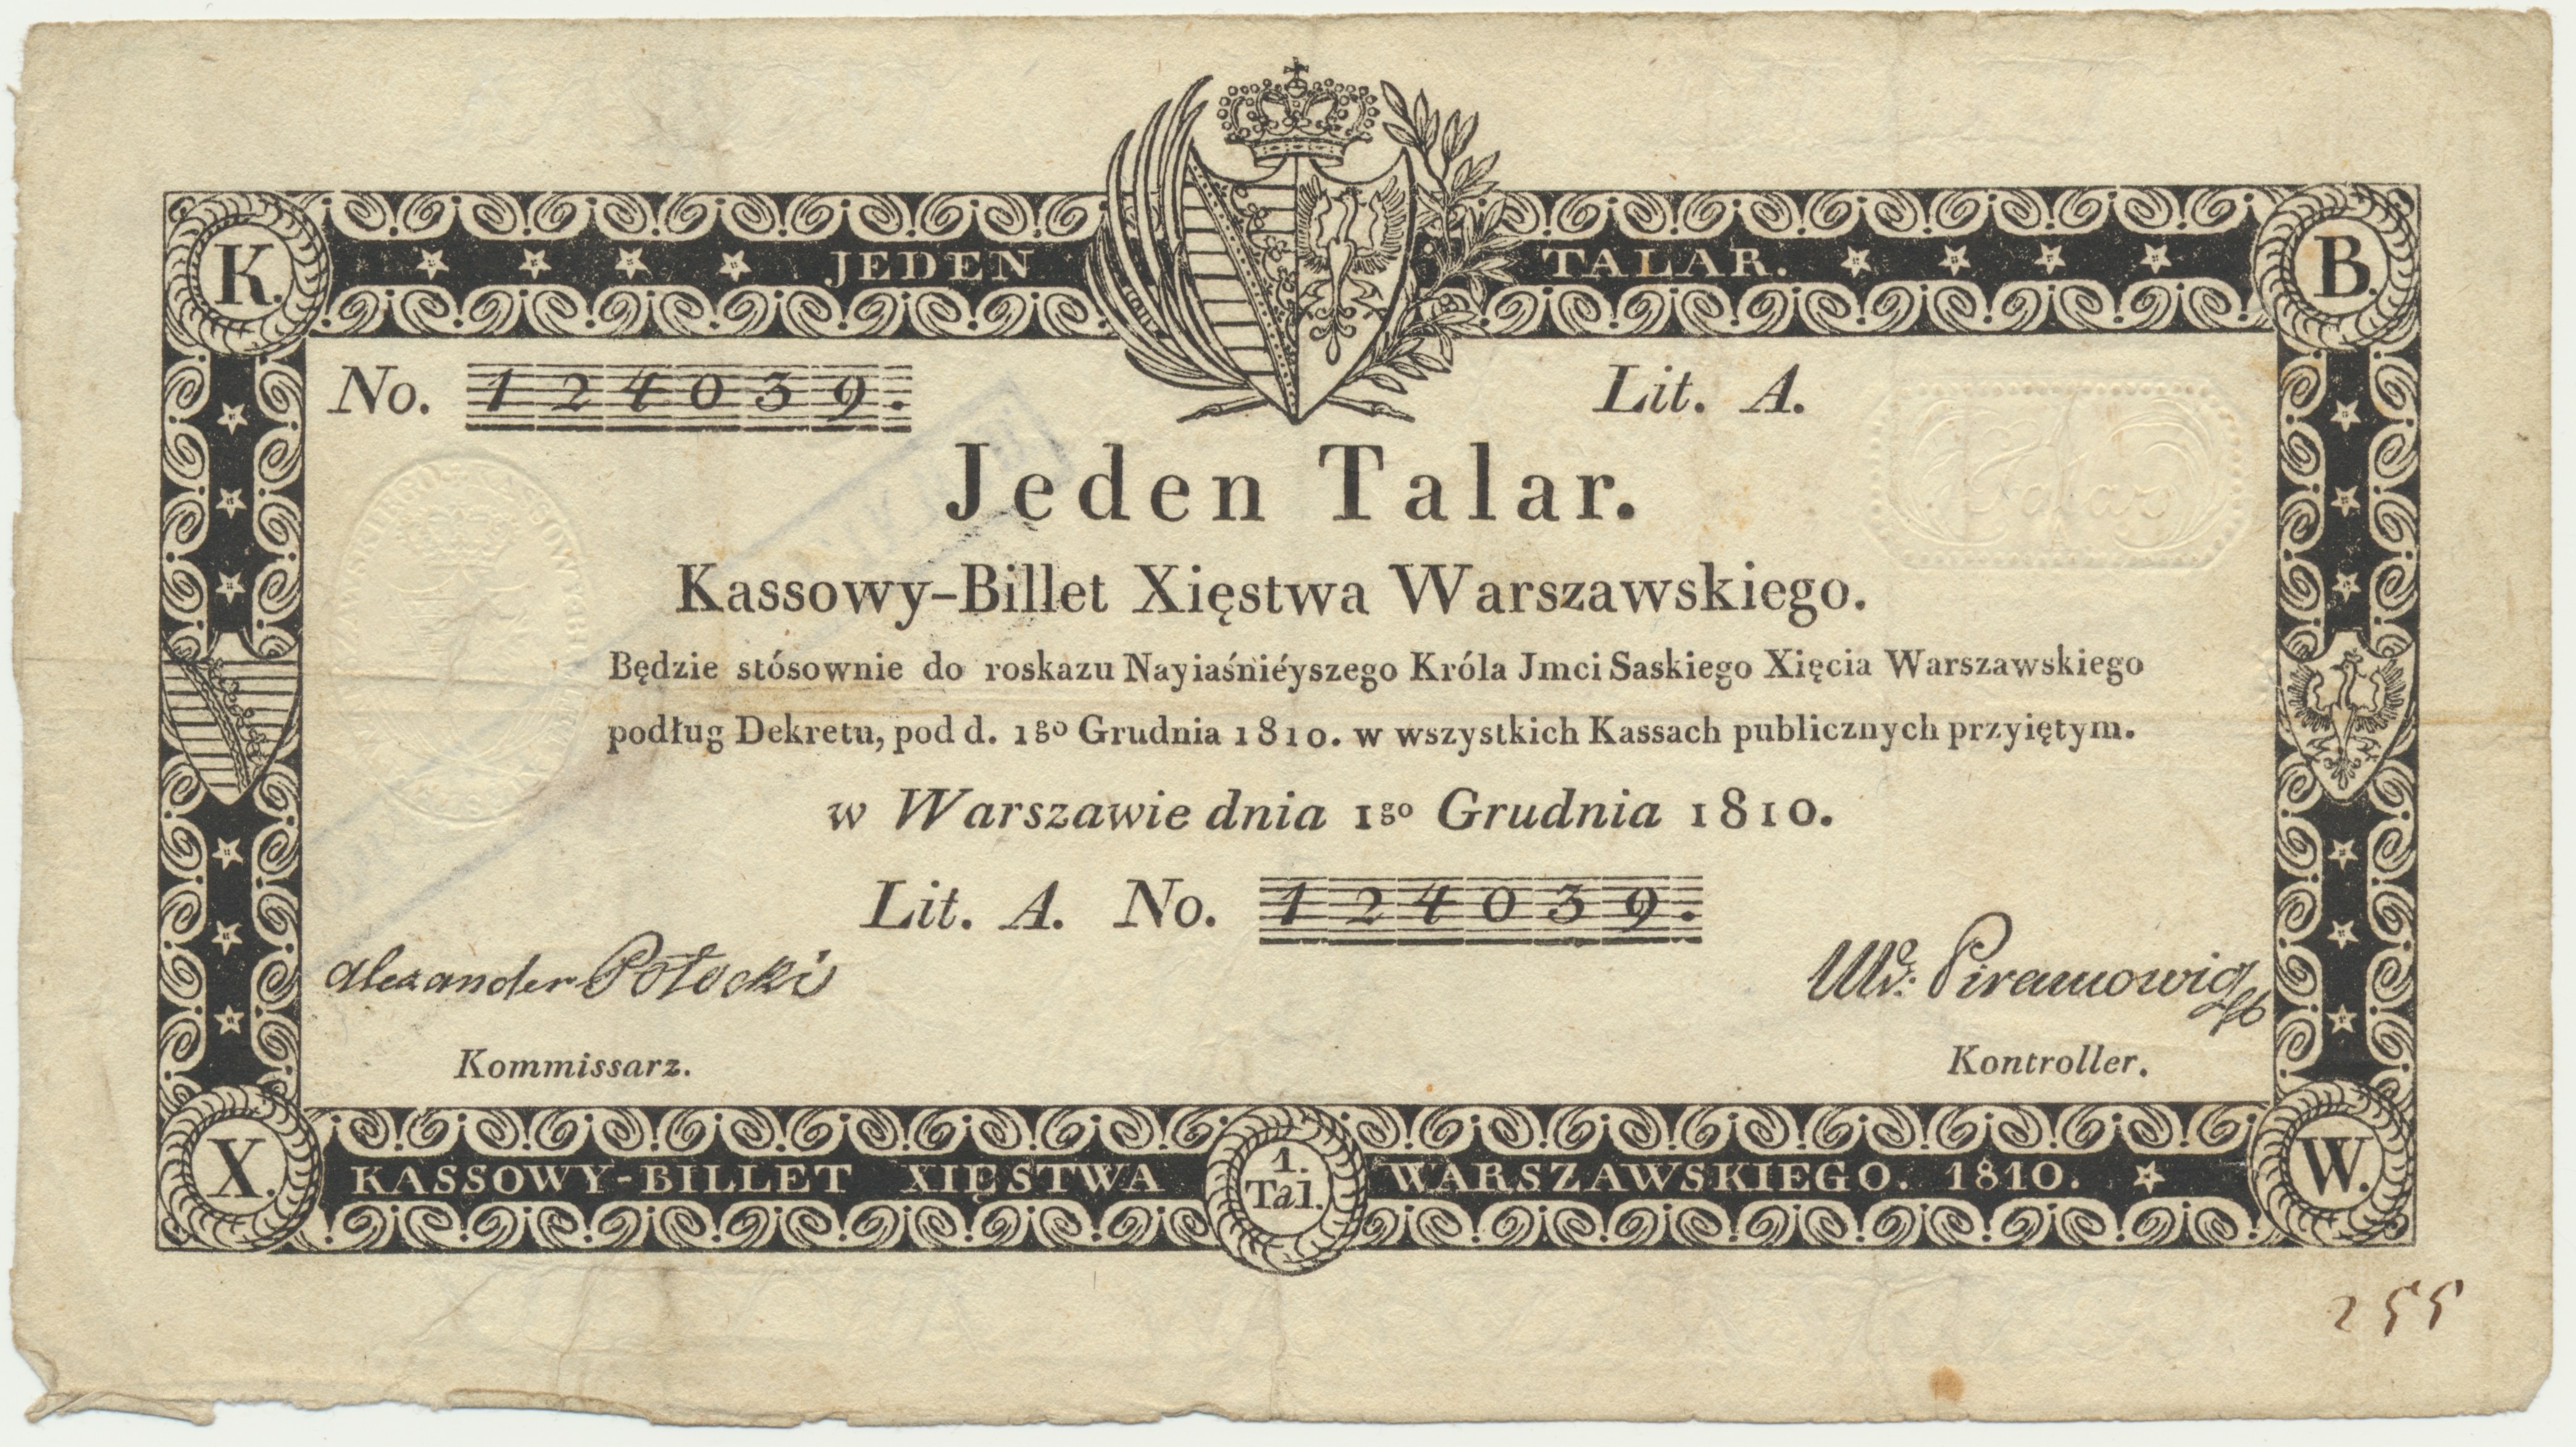 K. JEDEN TALAR. B.
No. 124039. Lit. A.
1 Talar
Jeden Talar.
Kassowy-Billet Xięstwa Warszawskiego.
Będzie stósownie do roskazu Nayiaśniéyszego Króla Jmci Saskiego Xięcia Warszawskiego
podług Dekretu, pod d. 1go Grudnia 1810. w wszystkich Kassach publicznych przyiętym.
w Warszawie dnia 1go Grudnia 1810.
Lit. A. No. 124039.
Alexander Potocki
Piramowicz
Kommissarz. Kontroller.
X. KASSOWY-BILLET XIĘSTWA 1. Tal. WARSZAWSKIEGO. 1810. W.
255